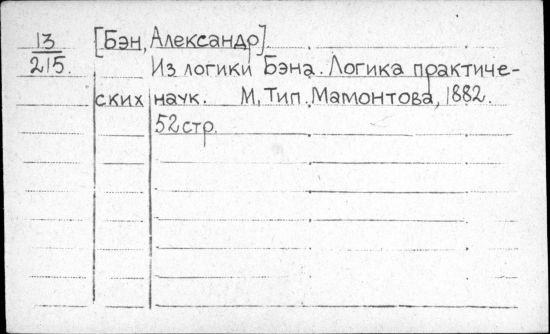 13 [Бэн, Александр]
215. Из логики Бэна. Логика практиче-
ских наук. М, Тип. Мамонтова, 1882.
52 стр.